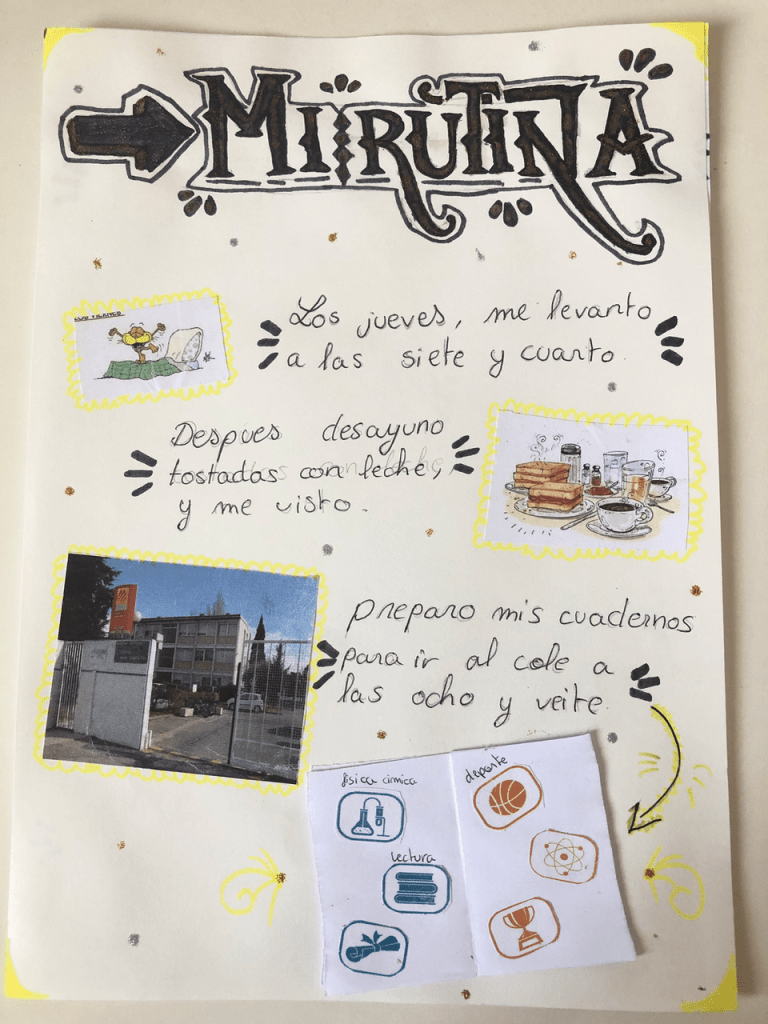 MI RUTINA
Los jueves, me levanto
a las siete y cuarto.
Despues desayuno
tostadas con leche,
y me visto.
preparo mis cuadernos
para ir al cole a
las ocho y veite.
fisica cimica
deporte
lectura